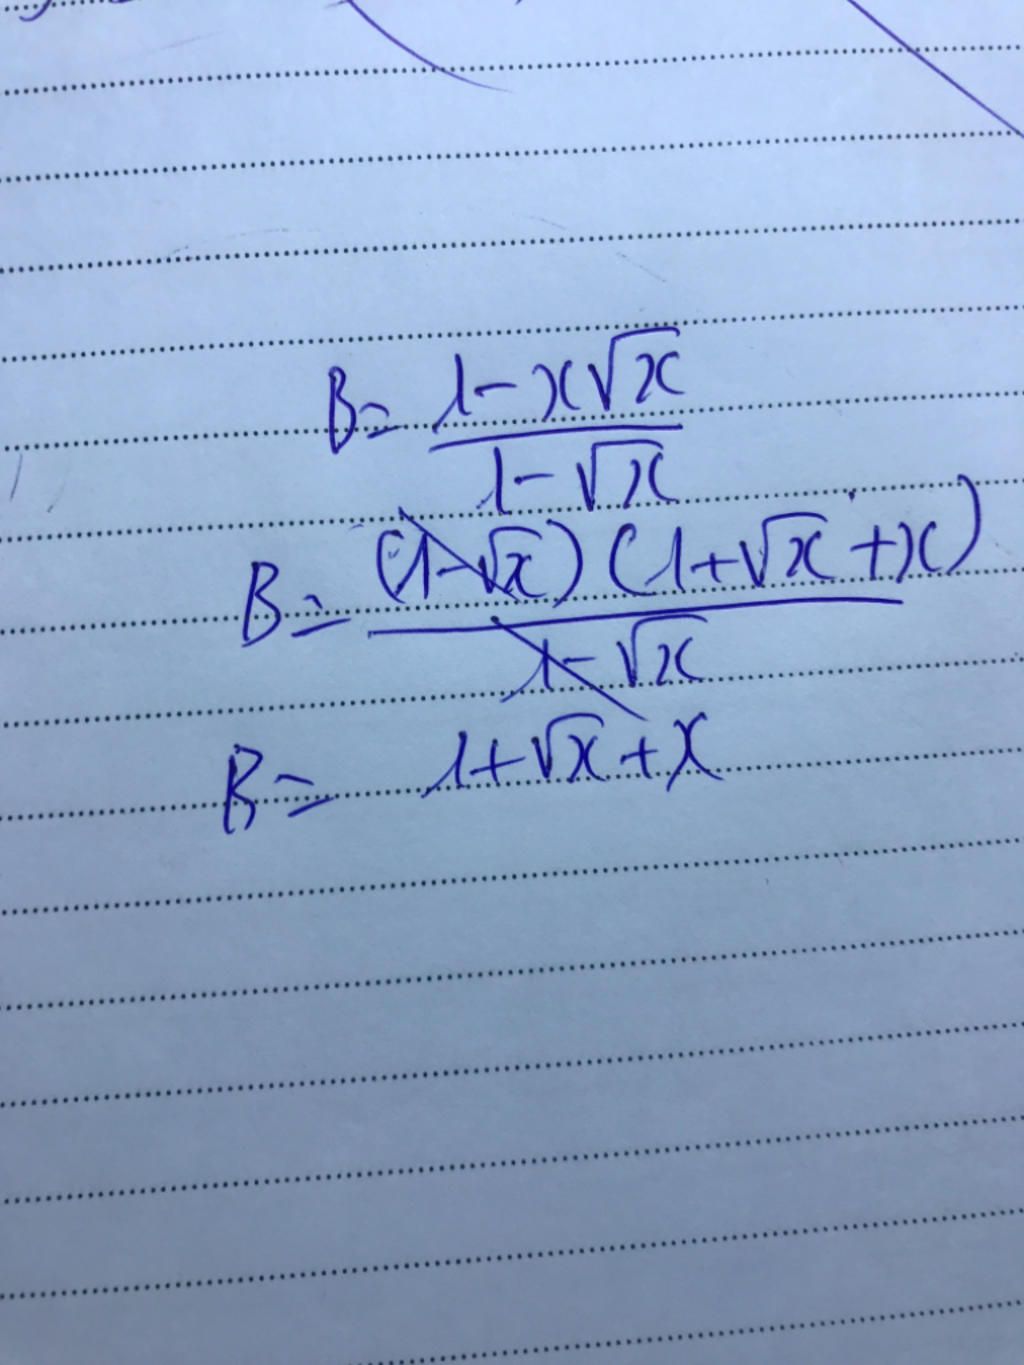 B = (1 - x√x) / (1 - √x)
B = (1-√x) (1+√x+x) / (1-√x)
B = 1+√x+x